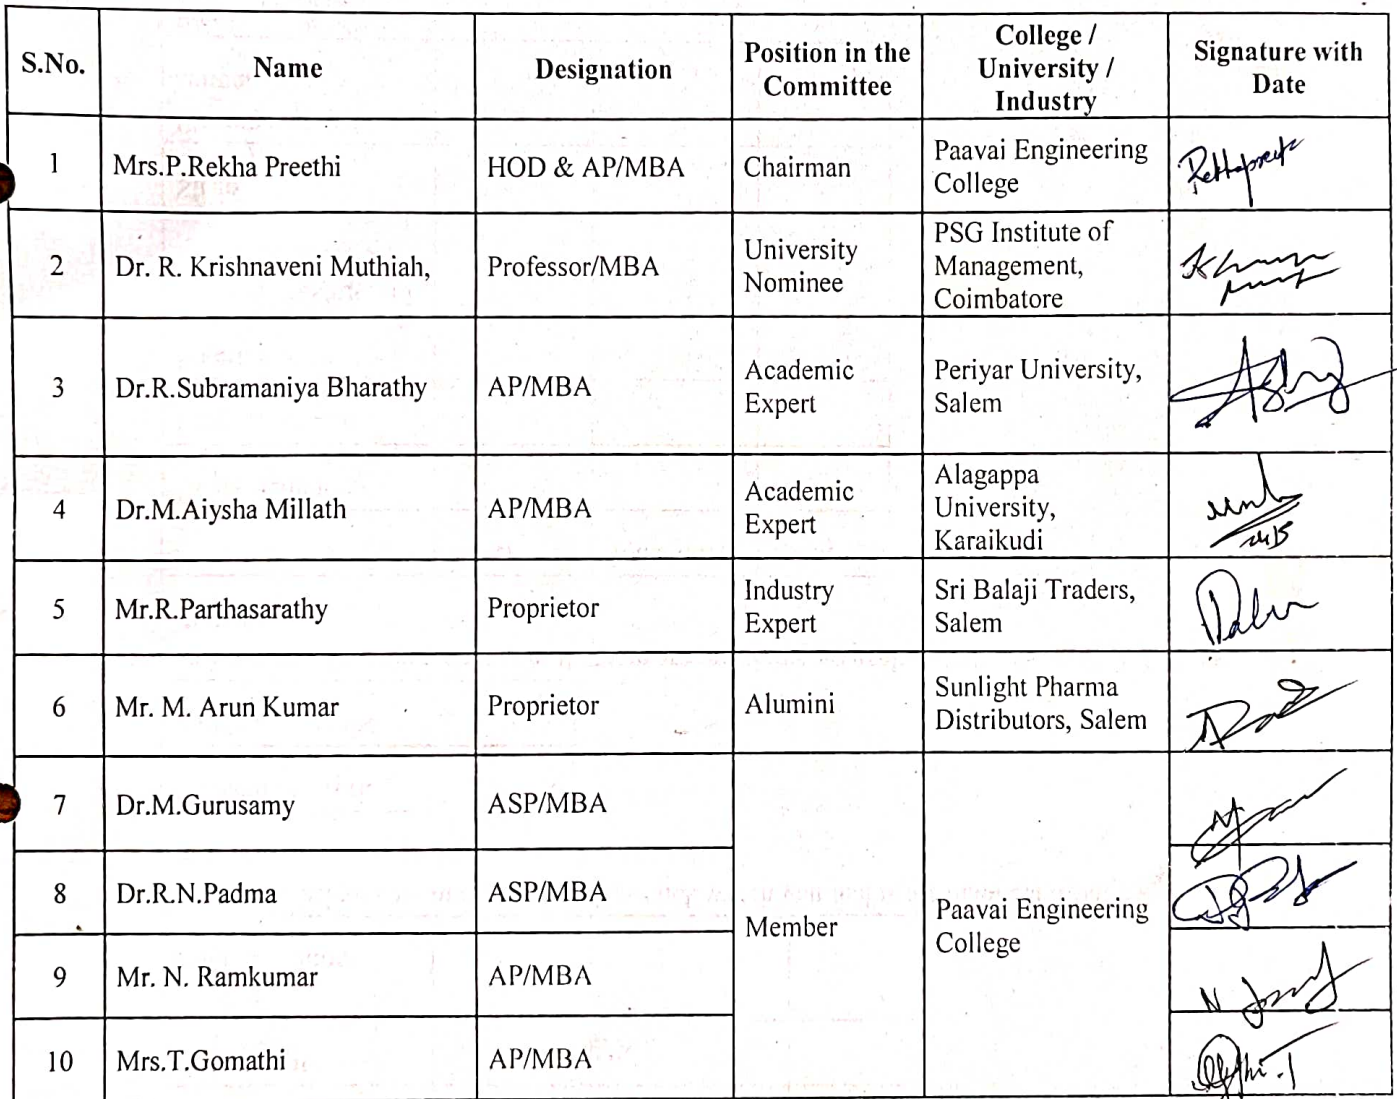 S.No.
Name
Designation
Position in the
Committee
College /
University /
Industry
Signature with
Date
1
Mrs.P.Rekha Preethi
HOD & AP/MBA
Chairman
Paavai Engineering
College
2
Dr. R. Krishnaveni Muthiah,
Professor/MBA
University
Nominee
PSG Institute of
Management,
Coimbatore
3
Dr.R.Subramaniya Bharathy
AP/MBA
Academic
Expert
Periyar University,
Salem
4
Dr.M.Aiysha Millath
AP/MBA
Academic
Expert
Alagappa
University,
Karaikudi
5
Mr.R.Parthasarathy
Proprietor
Industry
Expert
Sri Balaji Traders,
Salem
6
Mr. M. Arun Kumar
Proprietor
Alumini
Sunlight Pharma
Distributors, Salem
7
Dr.M.Gurusamy
ASP/MBA
Member
Paavai Engineering
College
8
Dr.R.N.Padma
ASP/MBA
9
Mr. N. Ramkumar
AP/MBA
10
Mrs.T.Gomathi
AP/MBA